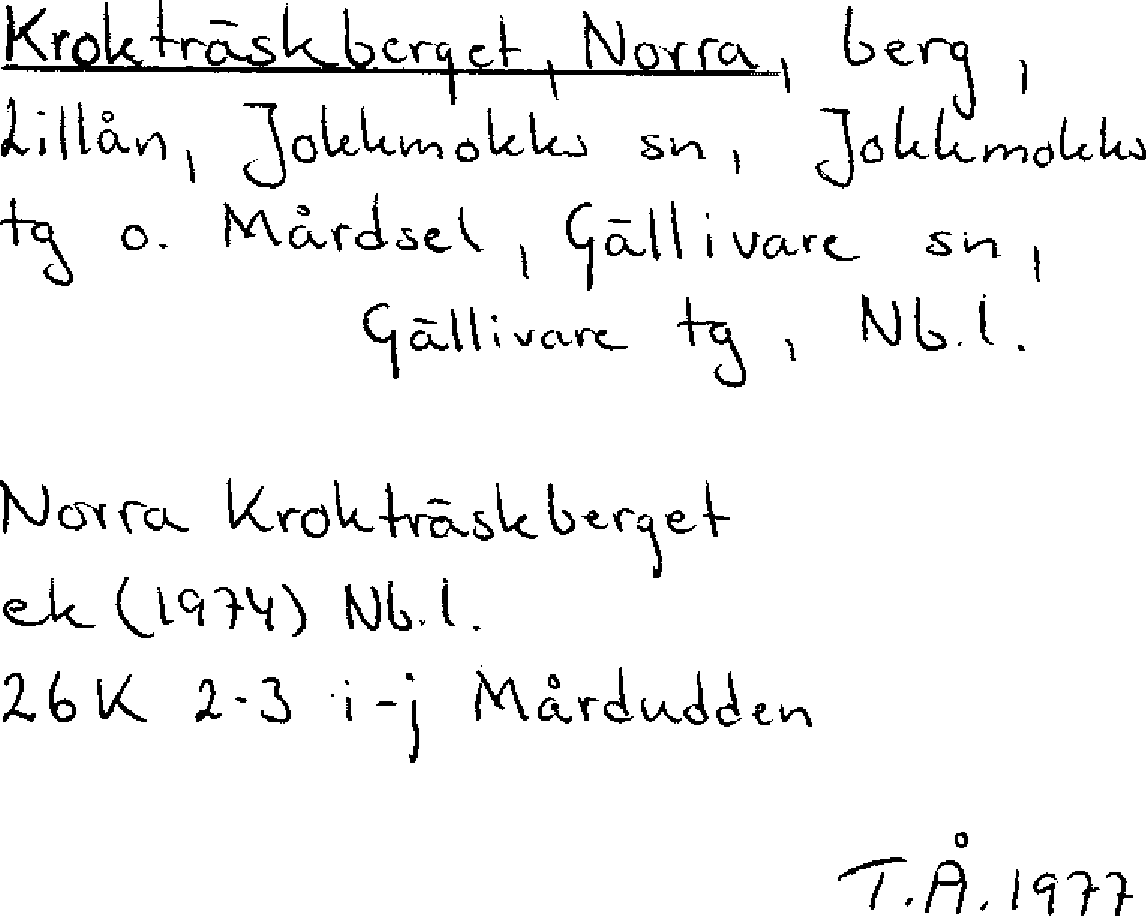 Krokträskberget, Norra, berg,
Lillån, Jokkmokks sn, Jokkmokks
tg o. Mårdsel, Gällivare sn,
Gällivare tg, Nb.l.
Norra Krokträskberget
ek (1974) Nb.l.
26K 2-3 i-j Mårdudden
T.Å. 1977